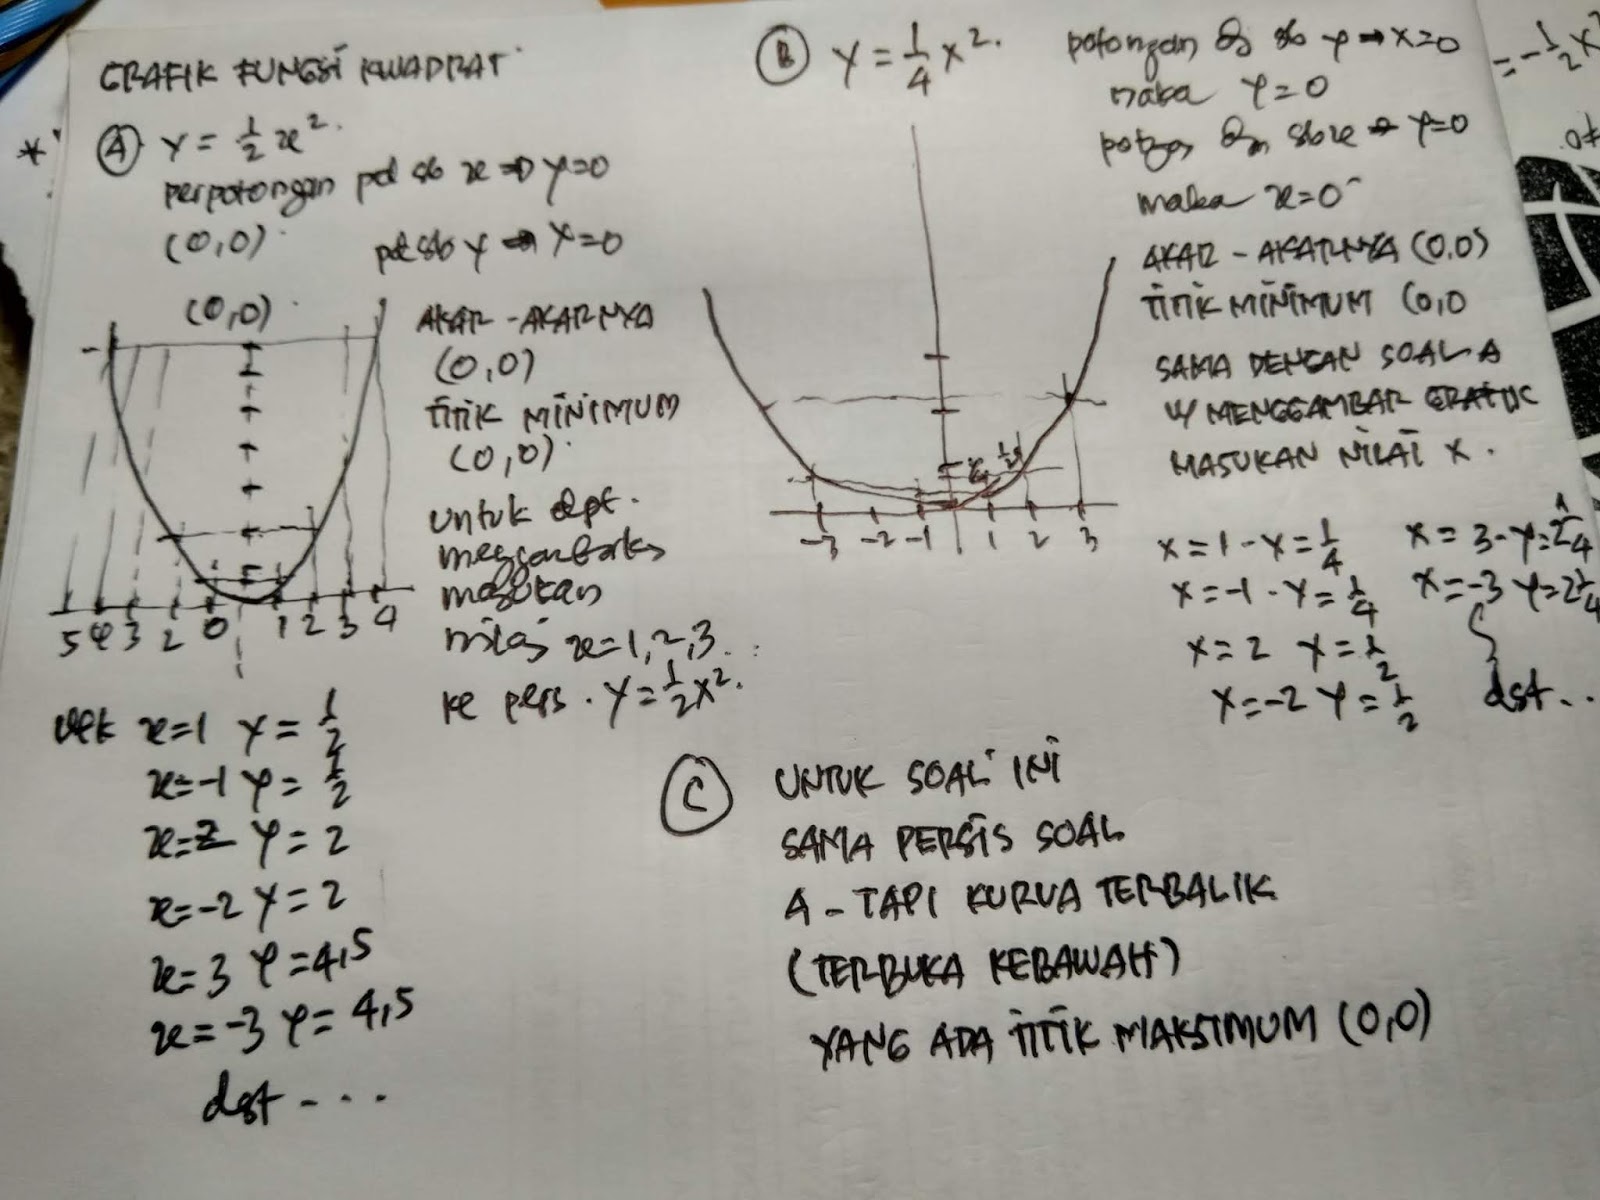 GRAFIK FUNGSI KWADRAT
*
A y = 1/2 x².
perpotongan pd sb x → y=0
(0,0)
pd sb y → x=0
(0,0)
AKAR-AKARNYA
(0,0)
TITIK MINIMUM
(0,0)
5 4 3 2 0 1 2 3 4
untuk dpt.
masukan
nilai x=1,2,3..
ke pers. y=1/2x².
utk x=1 y=1/2
x=-1 y=1/2
x=2 y=2
x=-2 y=2
x=3 y=4,5
x=-3 y=4,5
dst ....
B y = 1/4 x².
potongan dg sb y → x=0
maka y=0
sb x → y=0
maka x=0
AKAR-AKARNYA (0,0)
TITIK MINIMUM (0,0
SAMA DENGAN SOAL A
U/ MENGGAMBAR GRAFIK
MASUKAN NILAI X.
-3 -2 -1 1 2 3
x=1 - y=1/4 x=3 - y=2 1/4
x=-1 - y=1/4 x=-3 y=2 1/4
x=2 y=1/2
x=-2 y=1/2 dst...
C UNTUK SOAL INI
SAMA PERSIS SOAL
A - TAPI KURVA TERBALIK
(TERBUKA KEBAWAH)
YANG ADA TITIK MAKSIMUM (0,0)
= -1/2 x